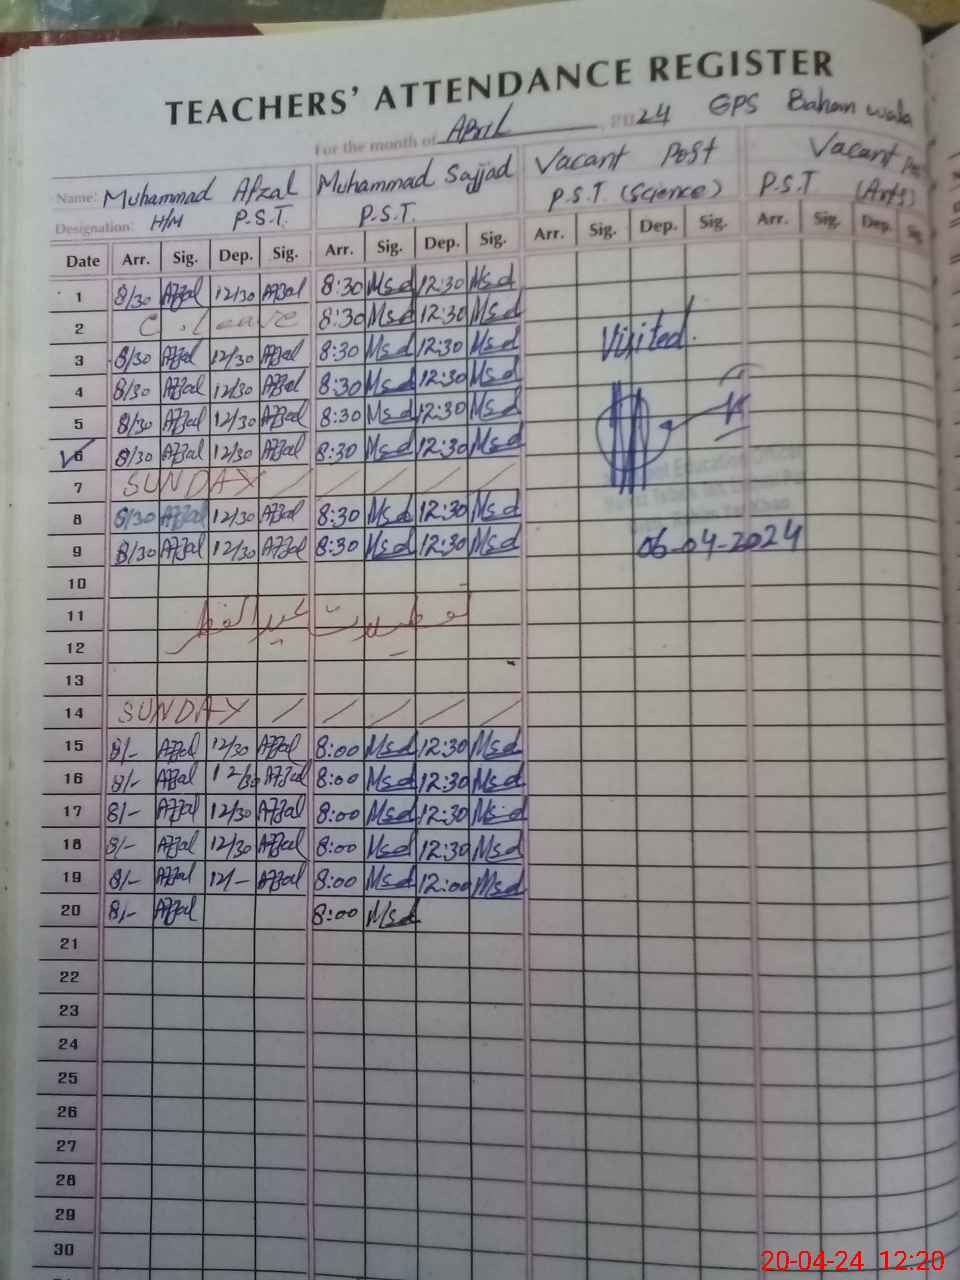 TEACHERS' ATTENDANCE REGISTER
For the month of April 24 GPS Bahamwala
Name: Muhammad Afzal Muhammad Sajjad Vacant Post Vacant Post
Designation: H/M P.S.T. P.S.T. P.S.T. (Science) P.S.T (Arts)
Date Arr. Sig. Dep. Sig. Arr. Sig. Dep. Sig. Arr. Sig. Dep. Sig. Arr. Sig. Dep. Sig.
1 8/30 Afzal 12/30 Afzal 8:30 Msd 12:30 Msd
2 C. Leave 8:30 Msd 12:30 Msd
Visited.
3 8/30 Afzal 12/30 Afzal 8:30 Msd 12:30 Msd
4 8/30 Afzal 12/30 Afzal 8:30 Msd 12:30 Msd
5 8/30 Afzal 12/30 Afzal 8:30 Msd 12:30 Msd
6 8/30 Afzal 12/30 Afzal 8:30 Msd 12:30 Msd
7 SUNDAY / / / / /
Education Officer
8 8/30 Afzal 12/30 Afzal 8:30 Msd 12:30 Msd
9 8/30 Afzal 12/30 Afzal 8:30 Msd 12:30 Msd 06-04-2024
10
11 تعطیلات عیدالفطر
12
13
14 SUNDAY / / / / /
15 8/- Afzal 12/30 Afzal 8:00 Msd 12:30 Msd
16 8/- Afzal 12/30 Afzal 8:00 Msd 12:30 Msd
17 8/- Afzal 12/30 Afzal 8:00 Msd 12:30 Msd
18 8/- Afzal 12/30 Afzal 8:00 Msd 12:30 Msd
19 8/- Afzal 12/- Afzal 8:00 Msd 12:00 Msd
20 8/- Afzal 8:00 Msd
21
22
23
24
25
26
27
28
29
30
20-04-24 12:20